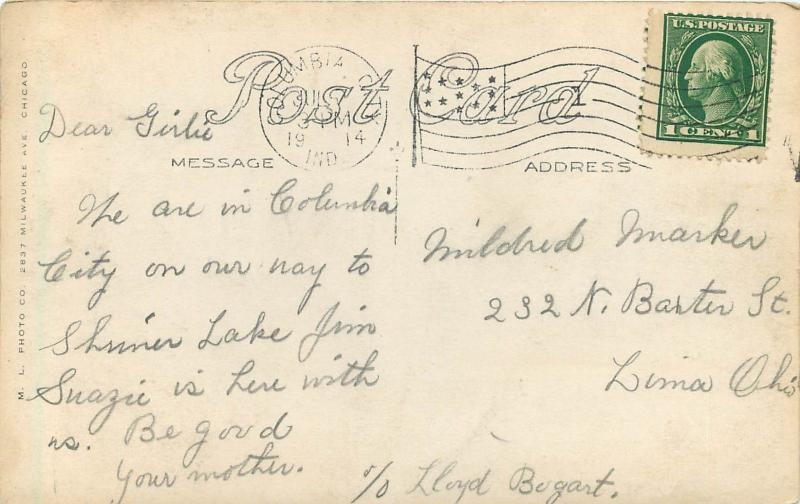 Post Card
UMBIA
3 PM
19 14
IND
U.S. POSTAGE
1 CENT 1
MESSAGE
ADDRESS
Dear Girlie
We are in Columbia
City on our way to
Shriner Lake Jim
Suazie is here with
us. Be good
your mother.
Mildred Marker
232 N. Baxter St.
Lima Ohio
c/o Lloyd Bogart.
M. L. PHOTO CO. 2837 MILWAUKEE AVE. CHICAGO